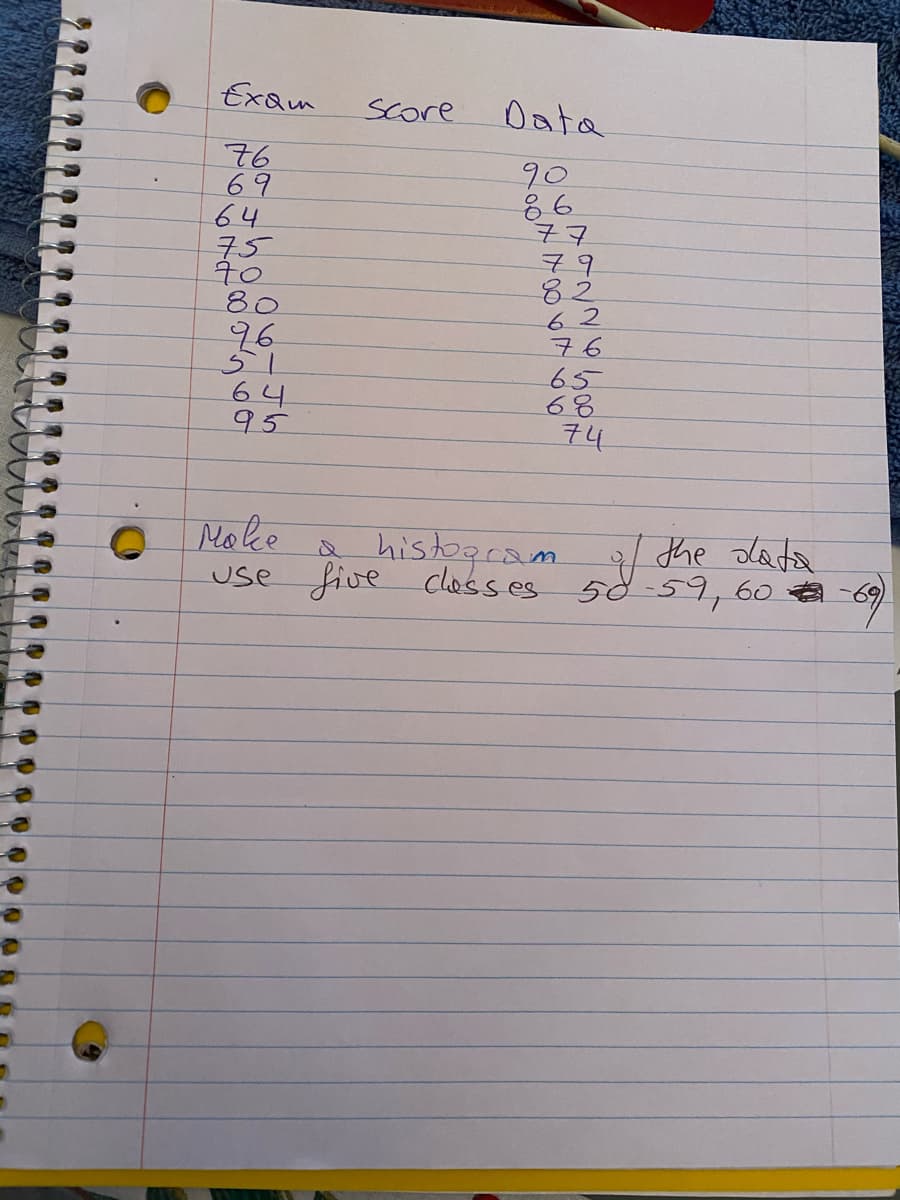 Exam score Data
76
69
64
75
70
80
96
51
64
95
90
86
77
79
82
62
76
65
68
74
Make a histogram of the data
use five classes 50-59, 60 -69)